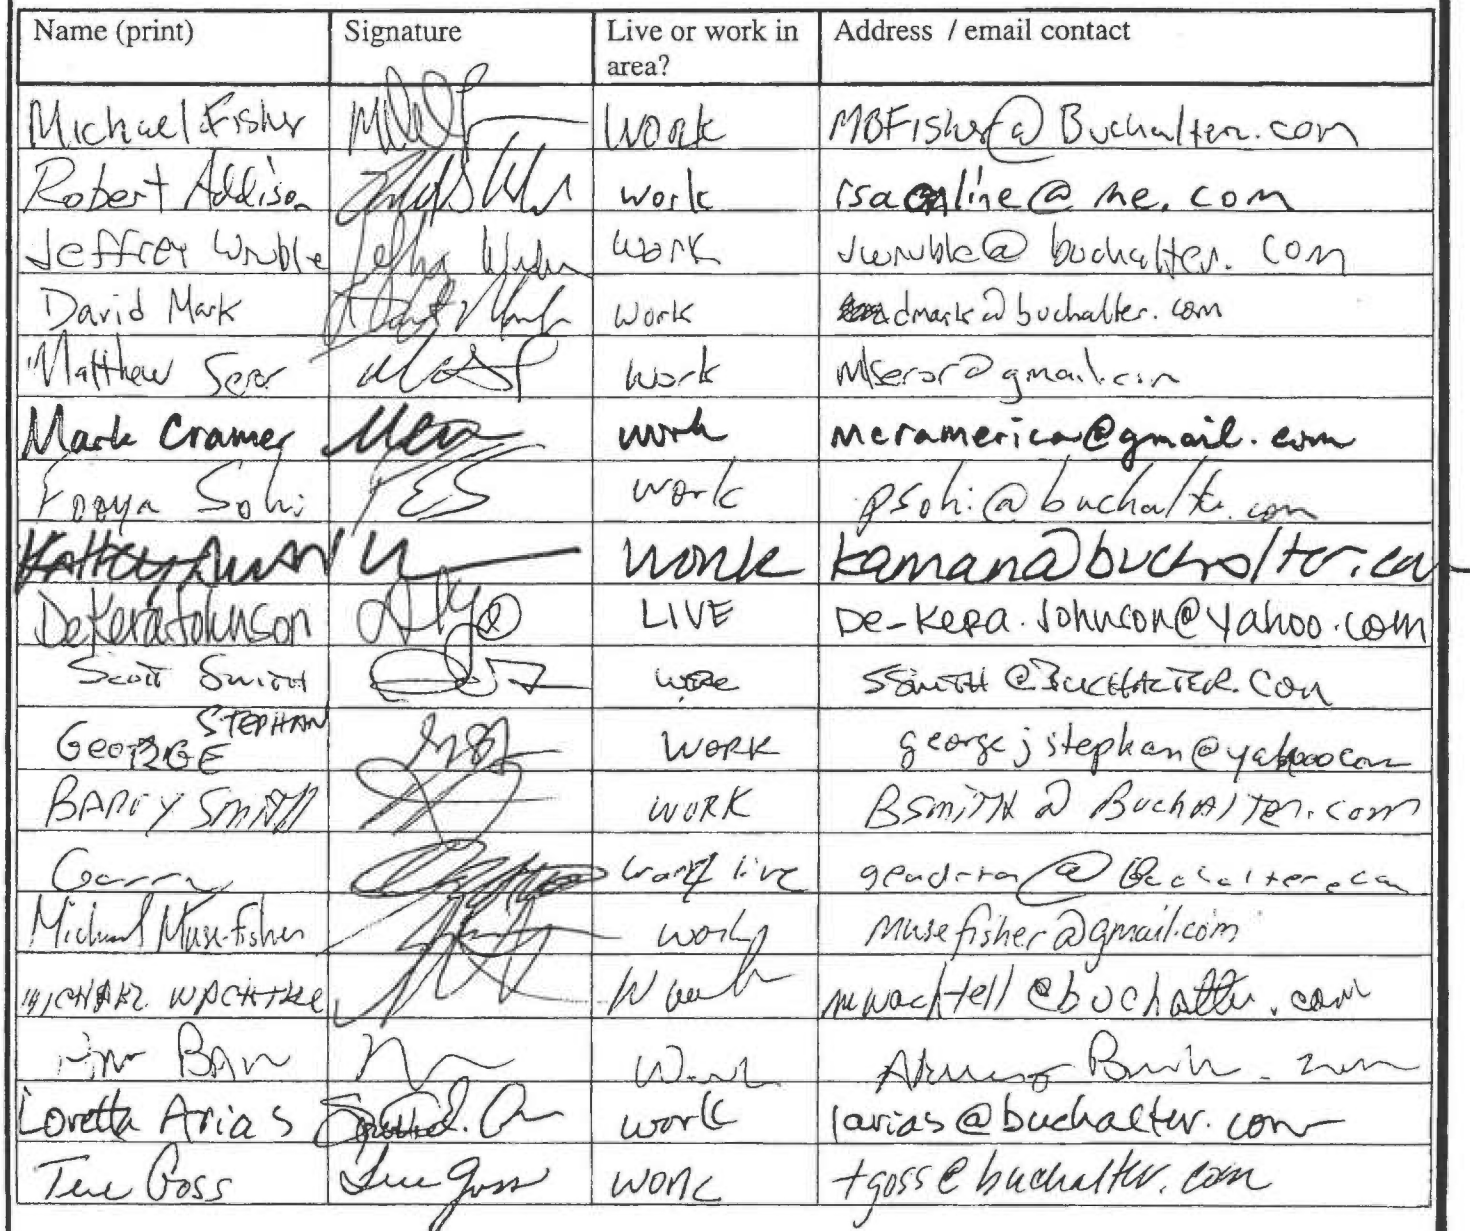 Name (print) Signature Live or work in area? Address / email contact
Michael Fisher work MBFisher@Buchalter.com
Robert Addison work rsaonline@me.com
Jeffrey Wruble work jwruble@buchalter.com
David Mark work dmark@buchalter.com
Matthew Seror work Mlseror@gmail.com
Mark Cramer work mcramerica@gmail.com
Pooya Sohi PES work psohi@buchalter.com
work kaman@buchalter.com
DeKera Johnson LIVE De-Kera.Johnson@yahoo.com
Scott Smith work SSmith@Buchalter.com
George STEPHAN WORK georgejstephan@yahoo.com
BARRY SMITH WORK BSmith@Buchalter.com
work/live @Buchalter.com
Michael Muse-Fisher work musefisher@gmail.com
MICHAEL WACHTELL Work mwachtell@buchalter.com
Work
Loretta Arias work larias@buchalter.com
Goss work tgoss@buchalter.com